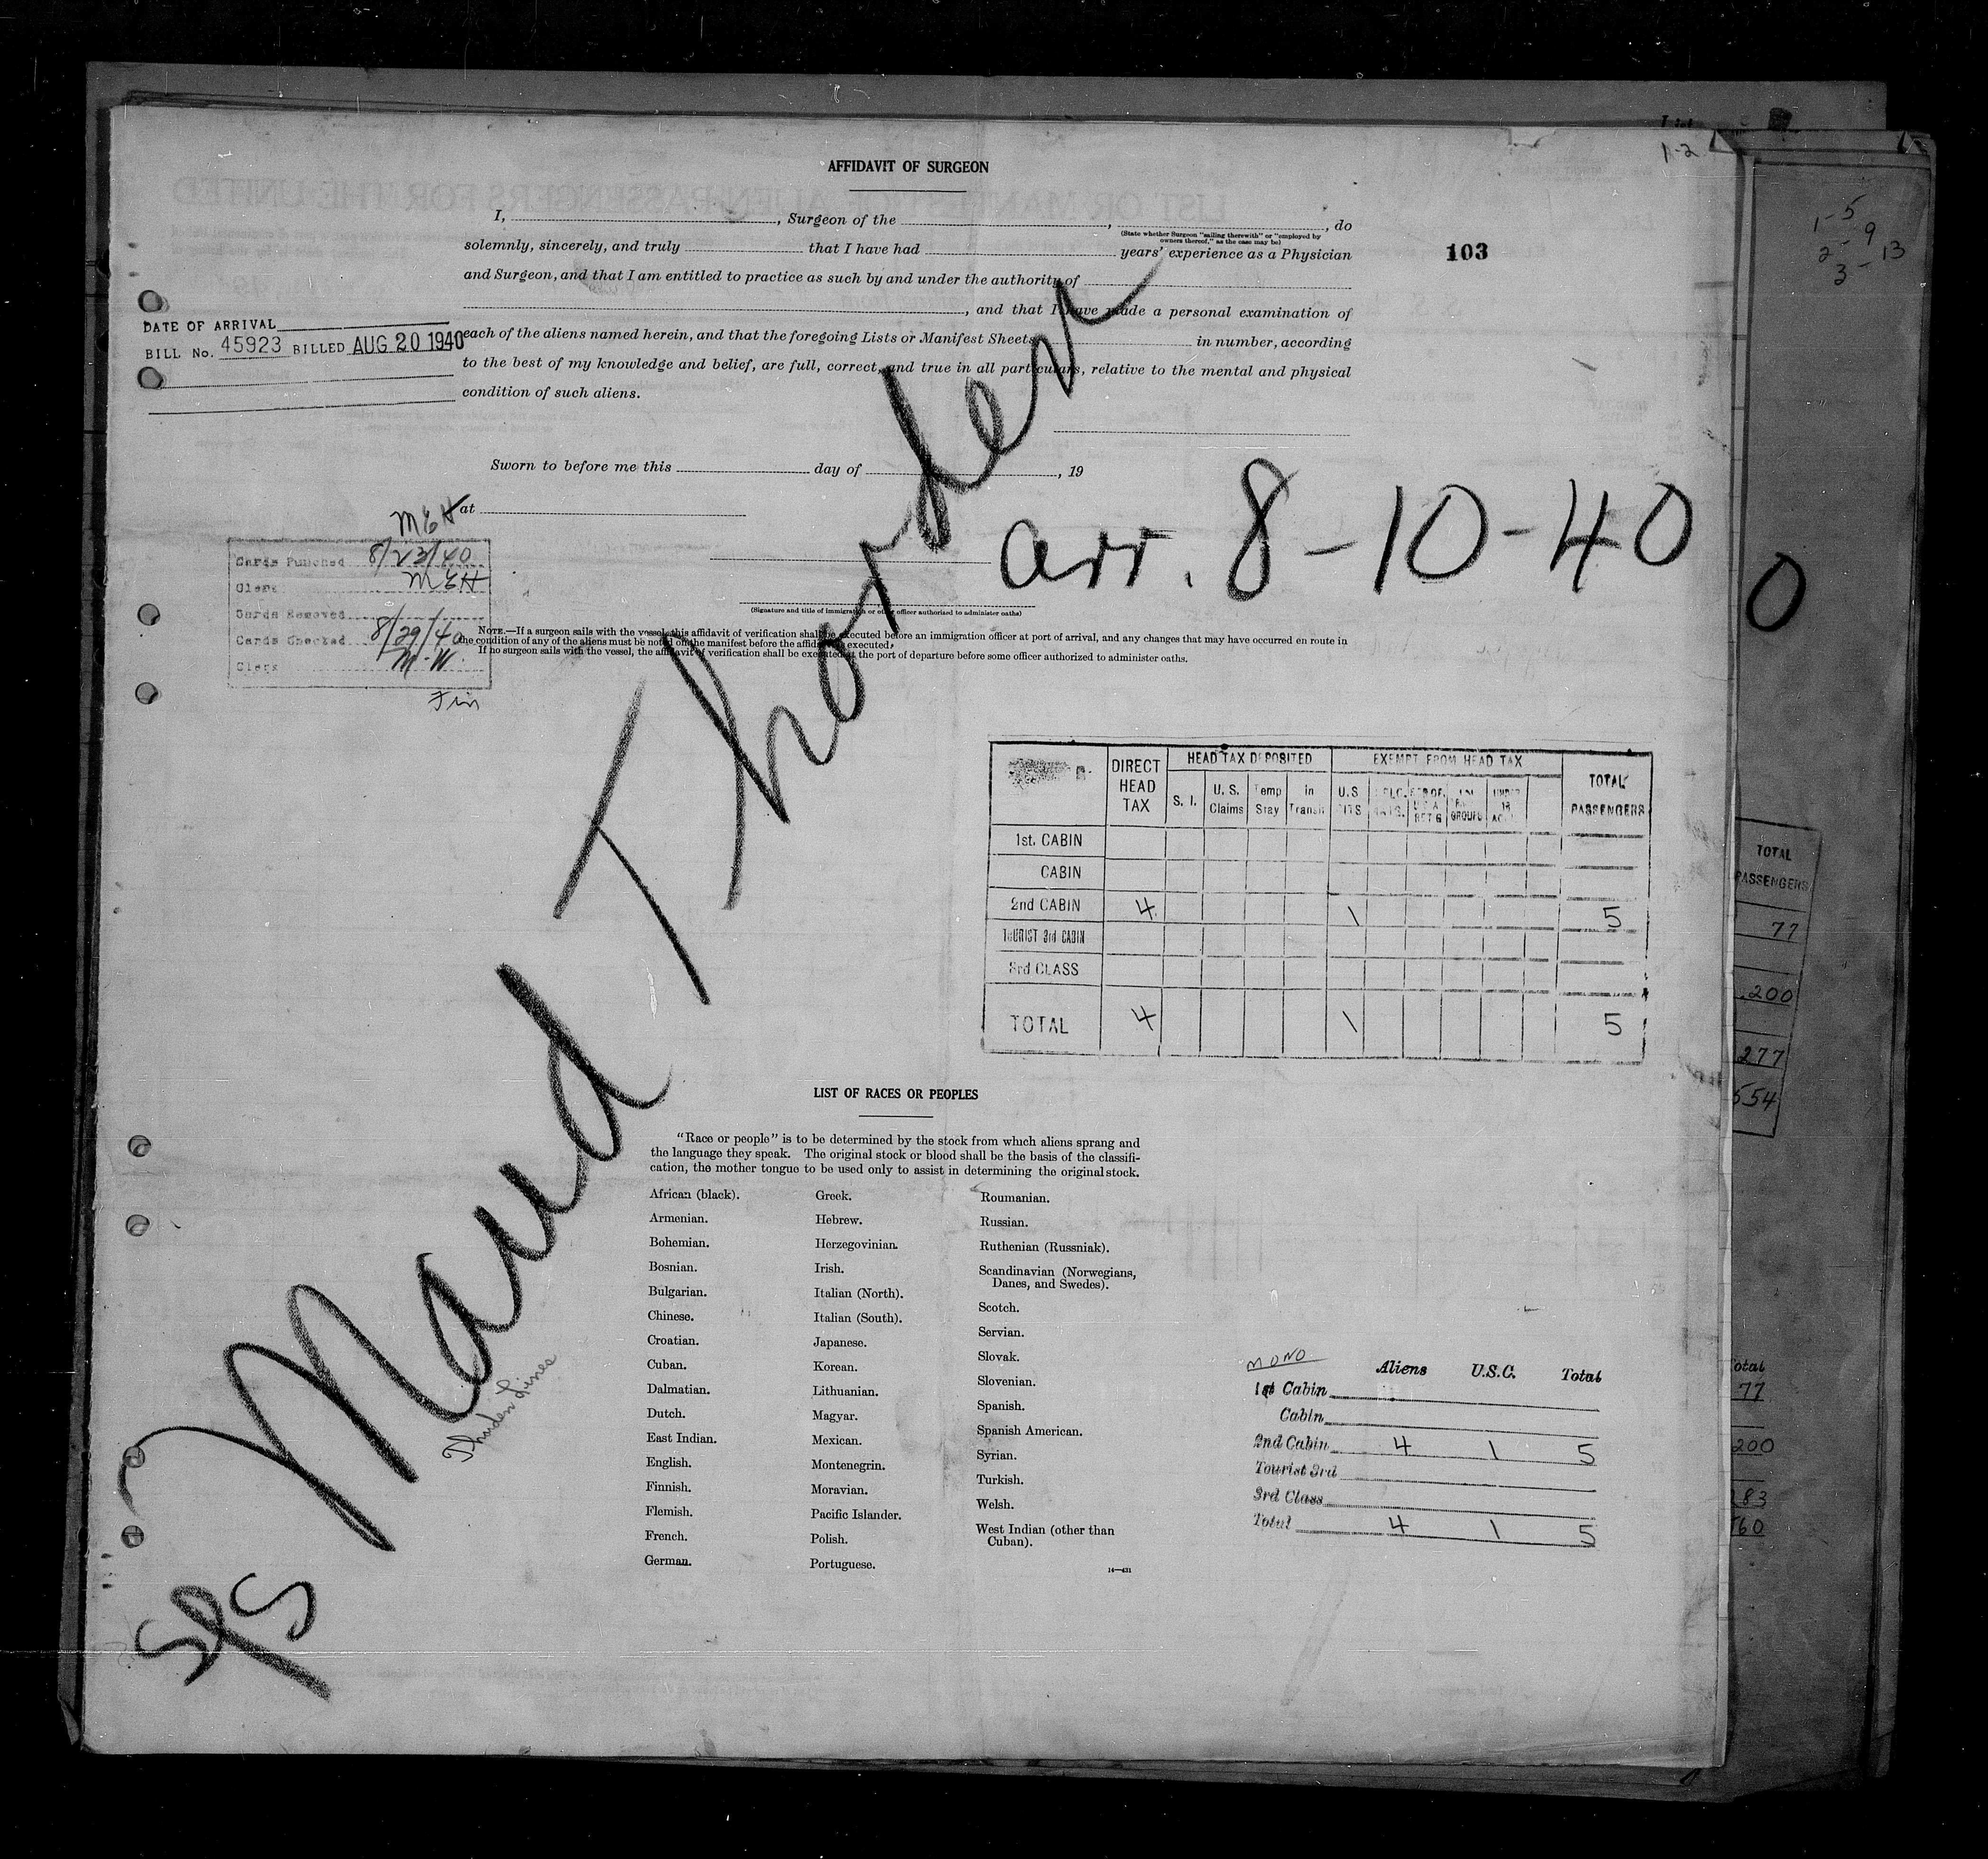 AFFIDAVIT OF SURGEON
I, , Surgeon of the , , do
(State whether Surgeon "sailing therewith" or "employed by owners thereof," as the case may be)
solemnly, sincerely, and truly that I have had years' experience as a Physician
and Surgeon, and that I am entitled to practice as such by and under the authority of
, and that I have made a personal examination of
each of the aliens named herein, and that the foregoing Lists or Manifest Sheets, in number, according
to the best of my knowledge and belief, are full, correct, and true in all particulars, relative to the mental and physical
condition of such aliens.
1-2
103
DATE OF ARRIVAL
BILL No. 45923 BILLED AUG 20 1940
Sworn to before me this day of , 19
at
MEH
Cards Punched 8/23/40
Clerk MEH
Cards Removed
Cards Checked 8/29/40
Clerk M.W.
Fin
arr. 8-10-40
(Signature and title of immigration or other officer authorized to administer oaths)
NOTE.—If a surgeon sails with the vessel, this affidavit of verification shall be executed before an immigration officer at port of arrival, and any changes that may have occurred en route in
the condition of any of the aliens must be noted on the manifest before the affidavit is executed.
If no surgeon sails with the vessel, the affidavit of verification shall be executed at the port of departure before some officer authorized to administer oaths.
S/S Maud Thorden
Thorden Lines
DIRECT HEAD TAX
HEAD TAX DEPOSITED
EXEMPT FROM HEAD TAX
TOTAL PASSENGERS
S. I. U. S. Claims Temp Stay in Transit U.S.
1st. CABIN
CABIN
2nd CABIN 4 1 5
TOURIST 3rd CABIN
3rd CLASS
TOTAL 4 1 5
LIST OF RACES OR PEOPLES
"Race or people" is to be determined by the stock from which aliens sprang and
the language they speak. The original stock or blood shall be the basis of the classifi-
cation, the mother tongue to be used only to assist in determining the original stock.
African (black).
Armenian.
Bohemian.
Bosnian.
Bulgarian.
Chinese.
Croatian.
Cuban.
Dalmatian.
Dutch.
East Indian.
English.
Finnish.
Flemish.
French.
German.
Greek.
Hebrew.
Herzegovinian.
Irish.
Italian (North).
Italian (South).
Japanese.
Korean.
Lithuanian.
Magyar.
Mexican.
Montenegrin.
Moravian.
Pacific Islander.
Polish.
Portuguese.
Roumanian.
Russian.
Ruthenian (Russniak).
Scandinavian (Norwegians,
Danes, and Swedes).
Scotch.
Servian.
Slovak.
Slovenian.
Spanish.
Spanish American.
Syrian.
Turkish.
Welsh.
West Indian (other than
Cuban).
14—431
MONO
Aliens U.S.C. Total
1st Cabin
Cabin
2nd Cabin 4 1 5
Tourist 3rd
3rd Class
Total 4 1 5
1-5
2-9
3-13
0
TOTAL
PASSENGERS
77
200
277
554
Total
77
200